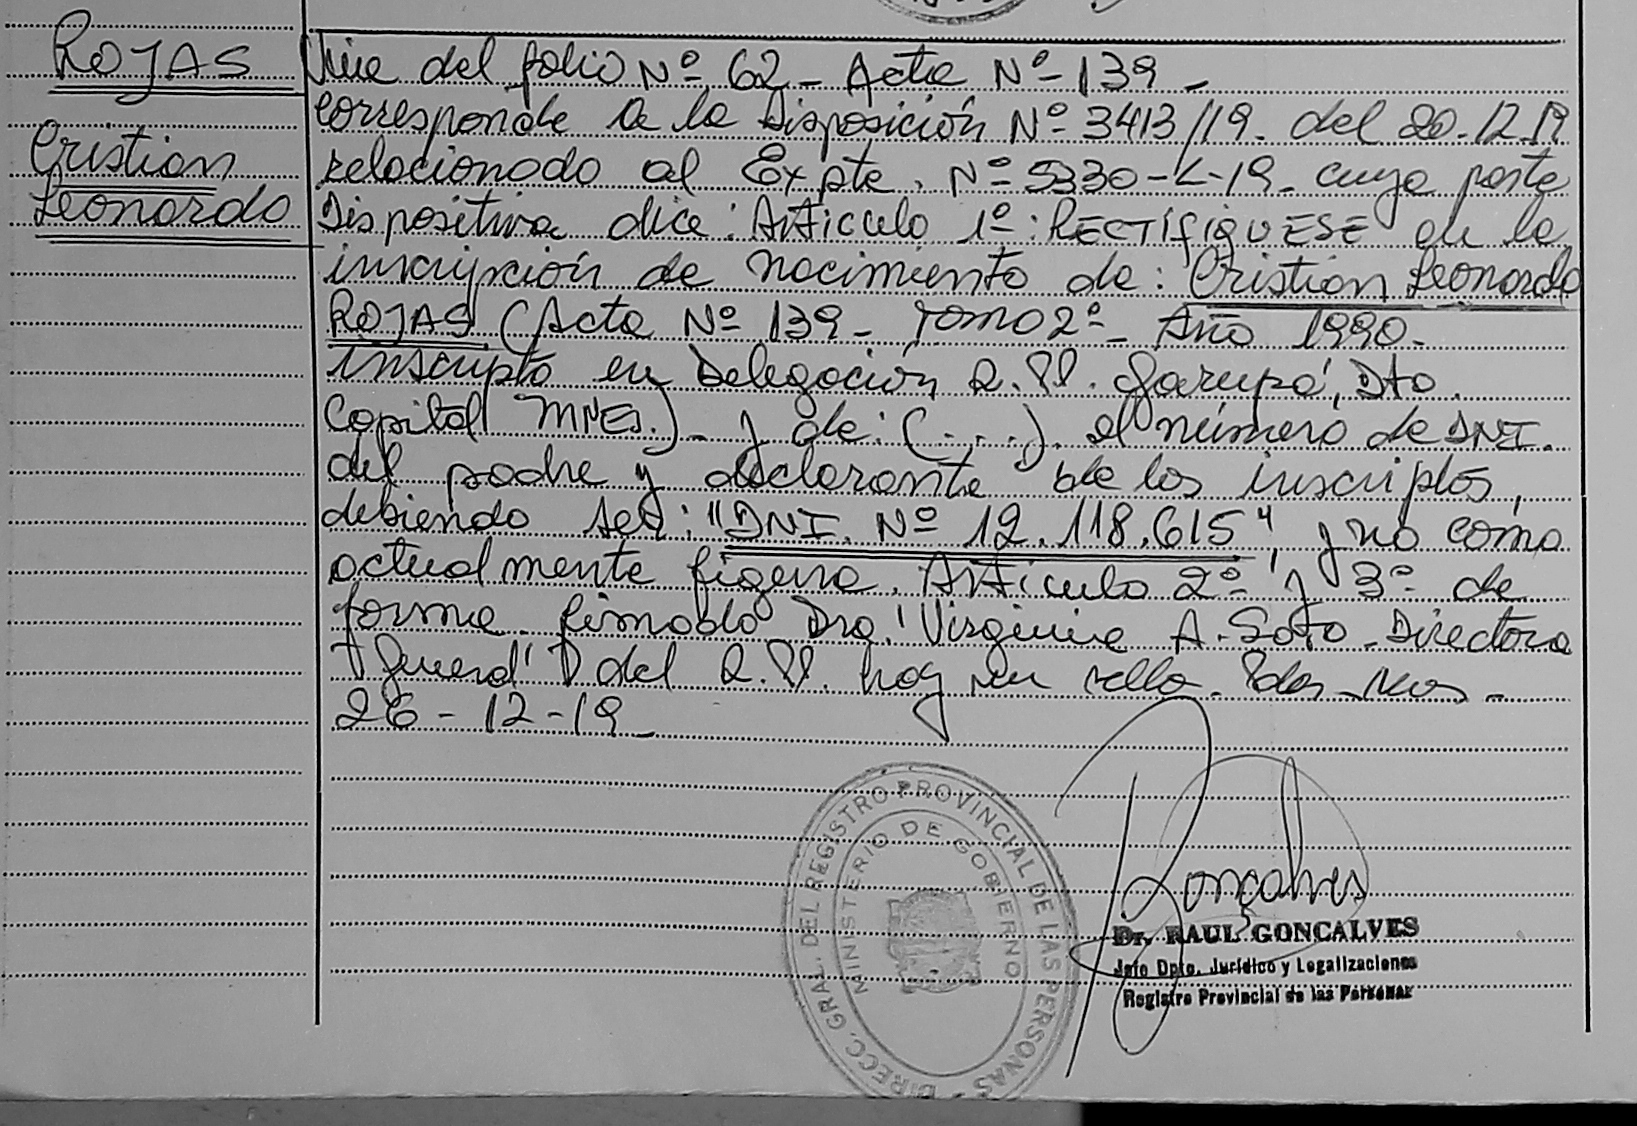 ROJAS
Cristian
Leonardo
Vine del folio Nº 62 - Acta Nº - 139 -
corresponde a la Disposición Nº 3413/19. del 20.12.19
relacionado al Expte. Nº 5330-L-19. cuya parte
Dispositiva dice: Artículo 1º: RECTIFIQUESE en la
inscripción de nacimiento de: Cristian Leonardo
ROJAS (Acta Nº 139 - Tomo 2º - Año 1990.
inscripto en Delegación R.PP. Garupá, Dto.
Capital Mnes.) - y de: (....). el número de DNI.
del padre y declarante de los inscriptos,
debiendo ser: "DNI. Nº 12.118.615", y no como
actualmente figura. Artículo 2º y 3º de
forma. firmado Dra. Virginia A. Soto. Directora
General del R.PP. hay un sello. Pdas. Mnes.
26-12-19
DIRECC. GRAL. DEL REGISTRO PROVINCIAL DE LAS PERSONAS
MINISTERIO DE GOBIERNO
Goncalves
Dr. RAUL GONCALVES
Jefe Dpto. Jurídico y Legalizaciones
Registro Provincial de las Personas